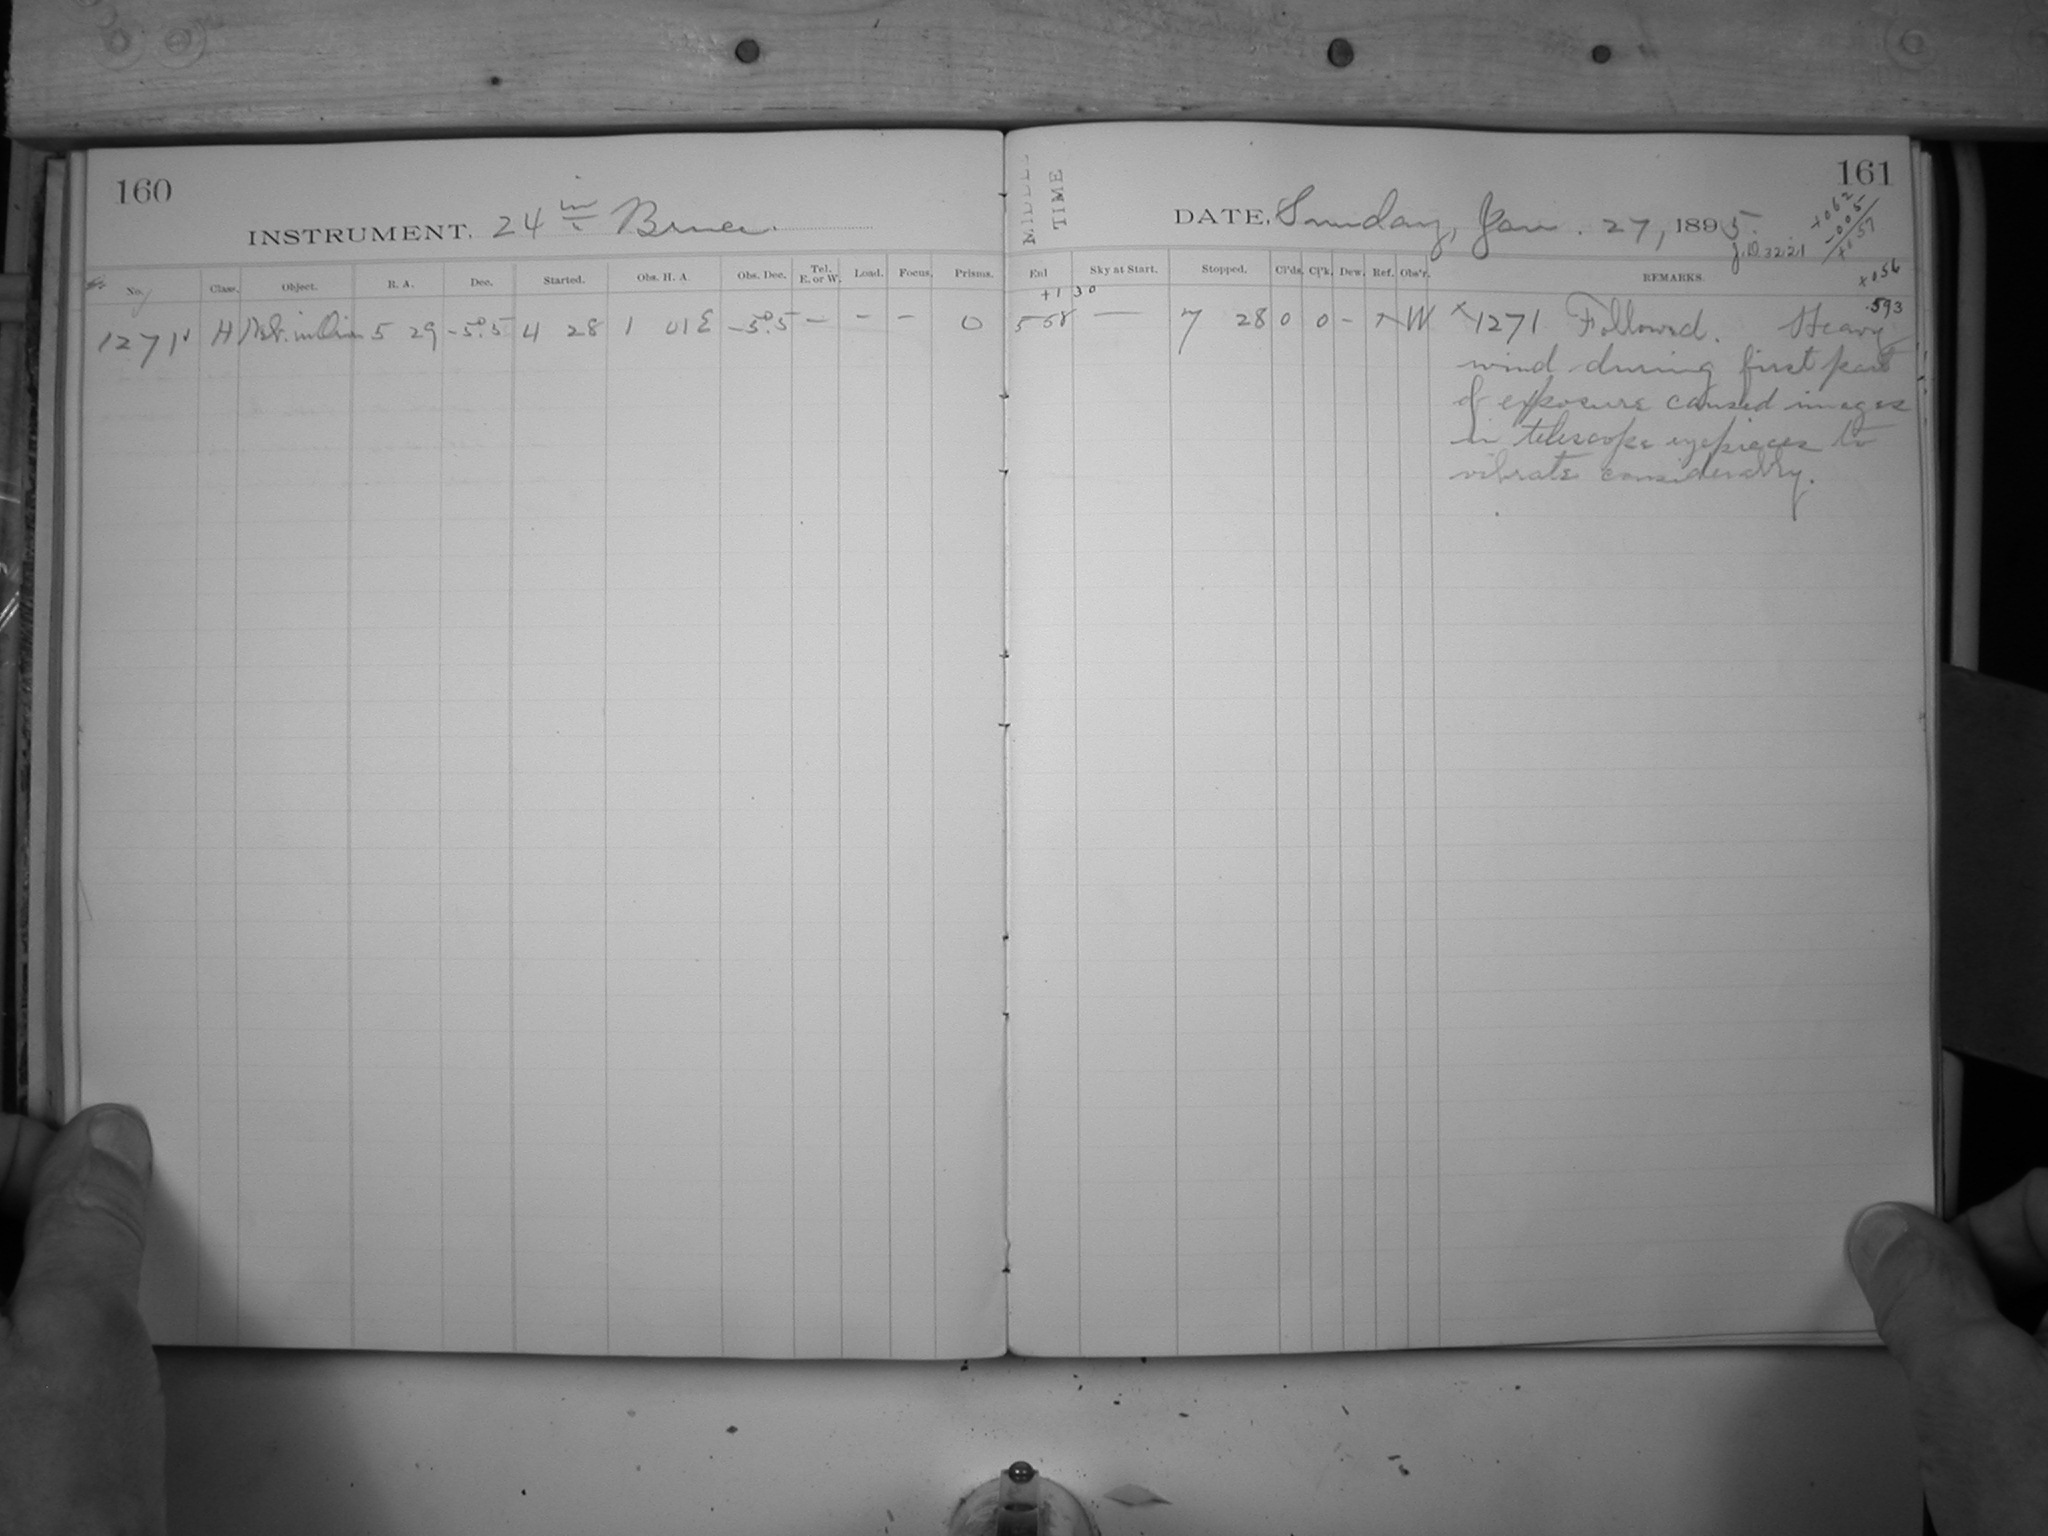 160
INSTRUMENT. 24 in Bruce.
No. Class. Object. R. A. Dec. Started. Obs. H. A. Obs. Dec. Tel. E. or W. Load. Focus. Prisms.
1271 H Neb. in Orion 5 29 -5°.5 4 28 1 01 E -5°.5 - - - 0
MIDDLE TIME
161
DATE, Sunday, Jan. 27, 1895.
J.D. 3221
+062
-005
+057
Enl Sky at Start. Stopped. Cl'ds. Cl'k. Dew. Ref. Obs'r. REMARKS.
+056
+1 30
.593
558 — 7 28 0 0 - W × 1271 Followed. Heavy
wind during first part
of exposure caused images
in telescope eyepieces to
vibrate considerably.